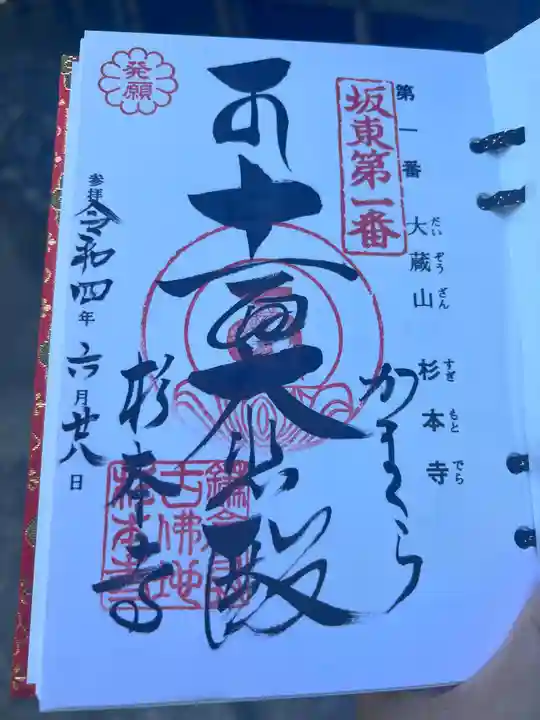 第一番 大蔵山 杉本寺
だいぞうざん すぎもとでら
坂東第一番
かまくら
十一面大悲殿
発願
杉本寺
参拝 令和四年 六月廿八日